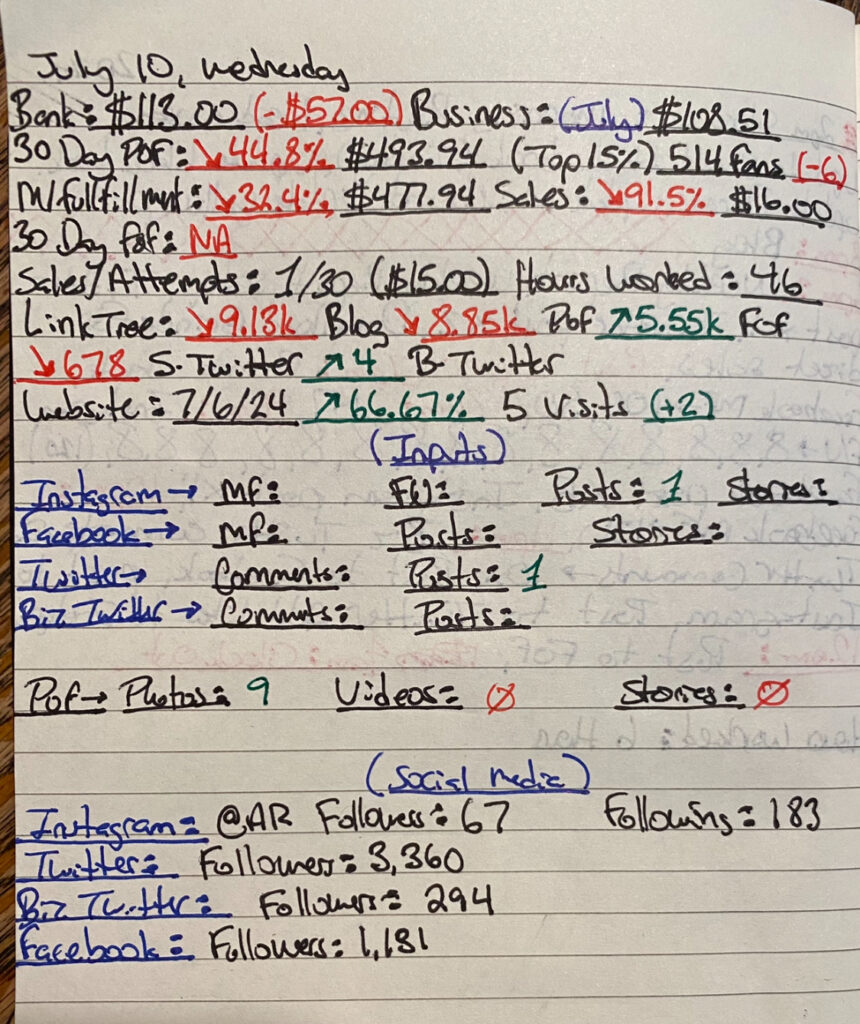 July 10, wednesday
Bank: $113.00 (-$57.00) Business: (July) $108.51
30 Day Pof: ↘44.8% $493.94 (Top 15%) 514 fans (-6)
M/fullfillmnt: ↘32.4% $477.94 Sales: ↘91.5% $16.00
30 Day fof: NA
Sales/Attempts: 1/30 ($15.00) Hours worked: 46
LinkTree: ↘9.18k Blog ↘8.85k Pof ↗5.55k Fof
↘678 S-Twitter ↗4 B-Twitter
Website: 7/6/24 ↗66.67% 5 Visits (+2)
(Inputs)
Instagram→ MF: FW: Posts: 1 Stories:
Facebook→ MF: Posts: Stories:
Twitter→ Comments: Posts: 1
Biz Twitter→ Commnts: Posts:
Pof→ Photos: 9 Videos: Ø Stories: Ø
(Social Media)
Instagram: @AR Followers: 67 Following: 183
Twitter: Followers: 3,360
Biz Twitter: Followers: 294
Facebook: Followers: 1,181